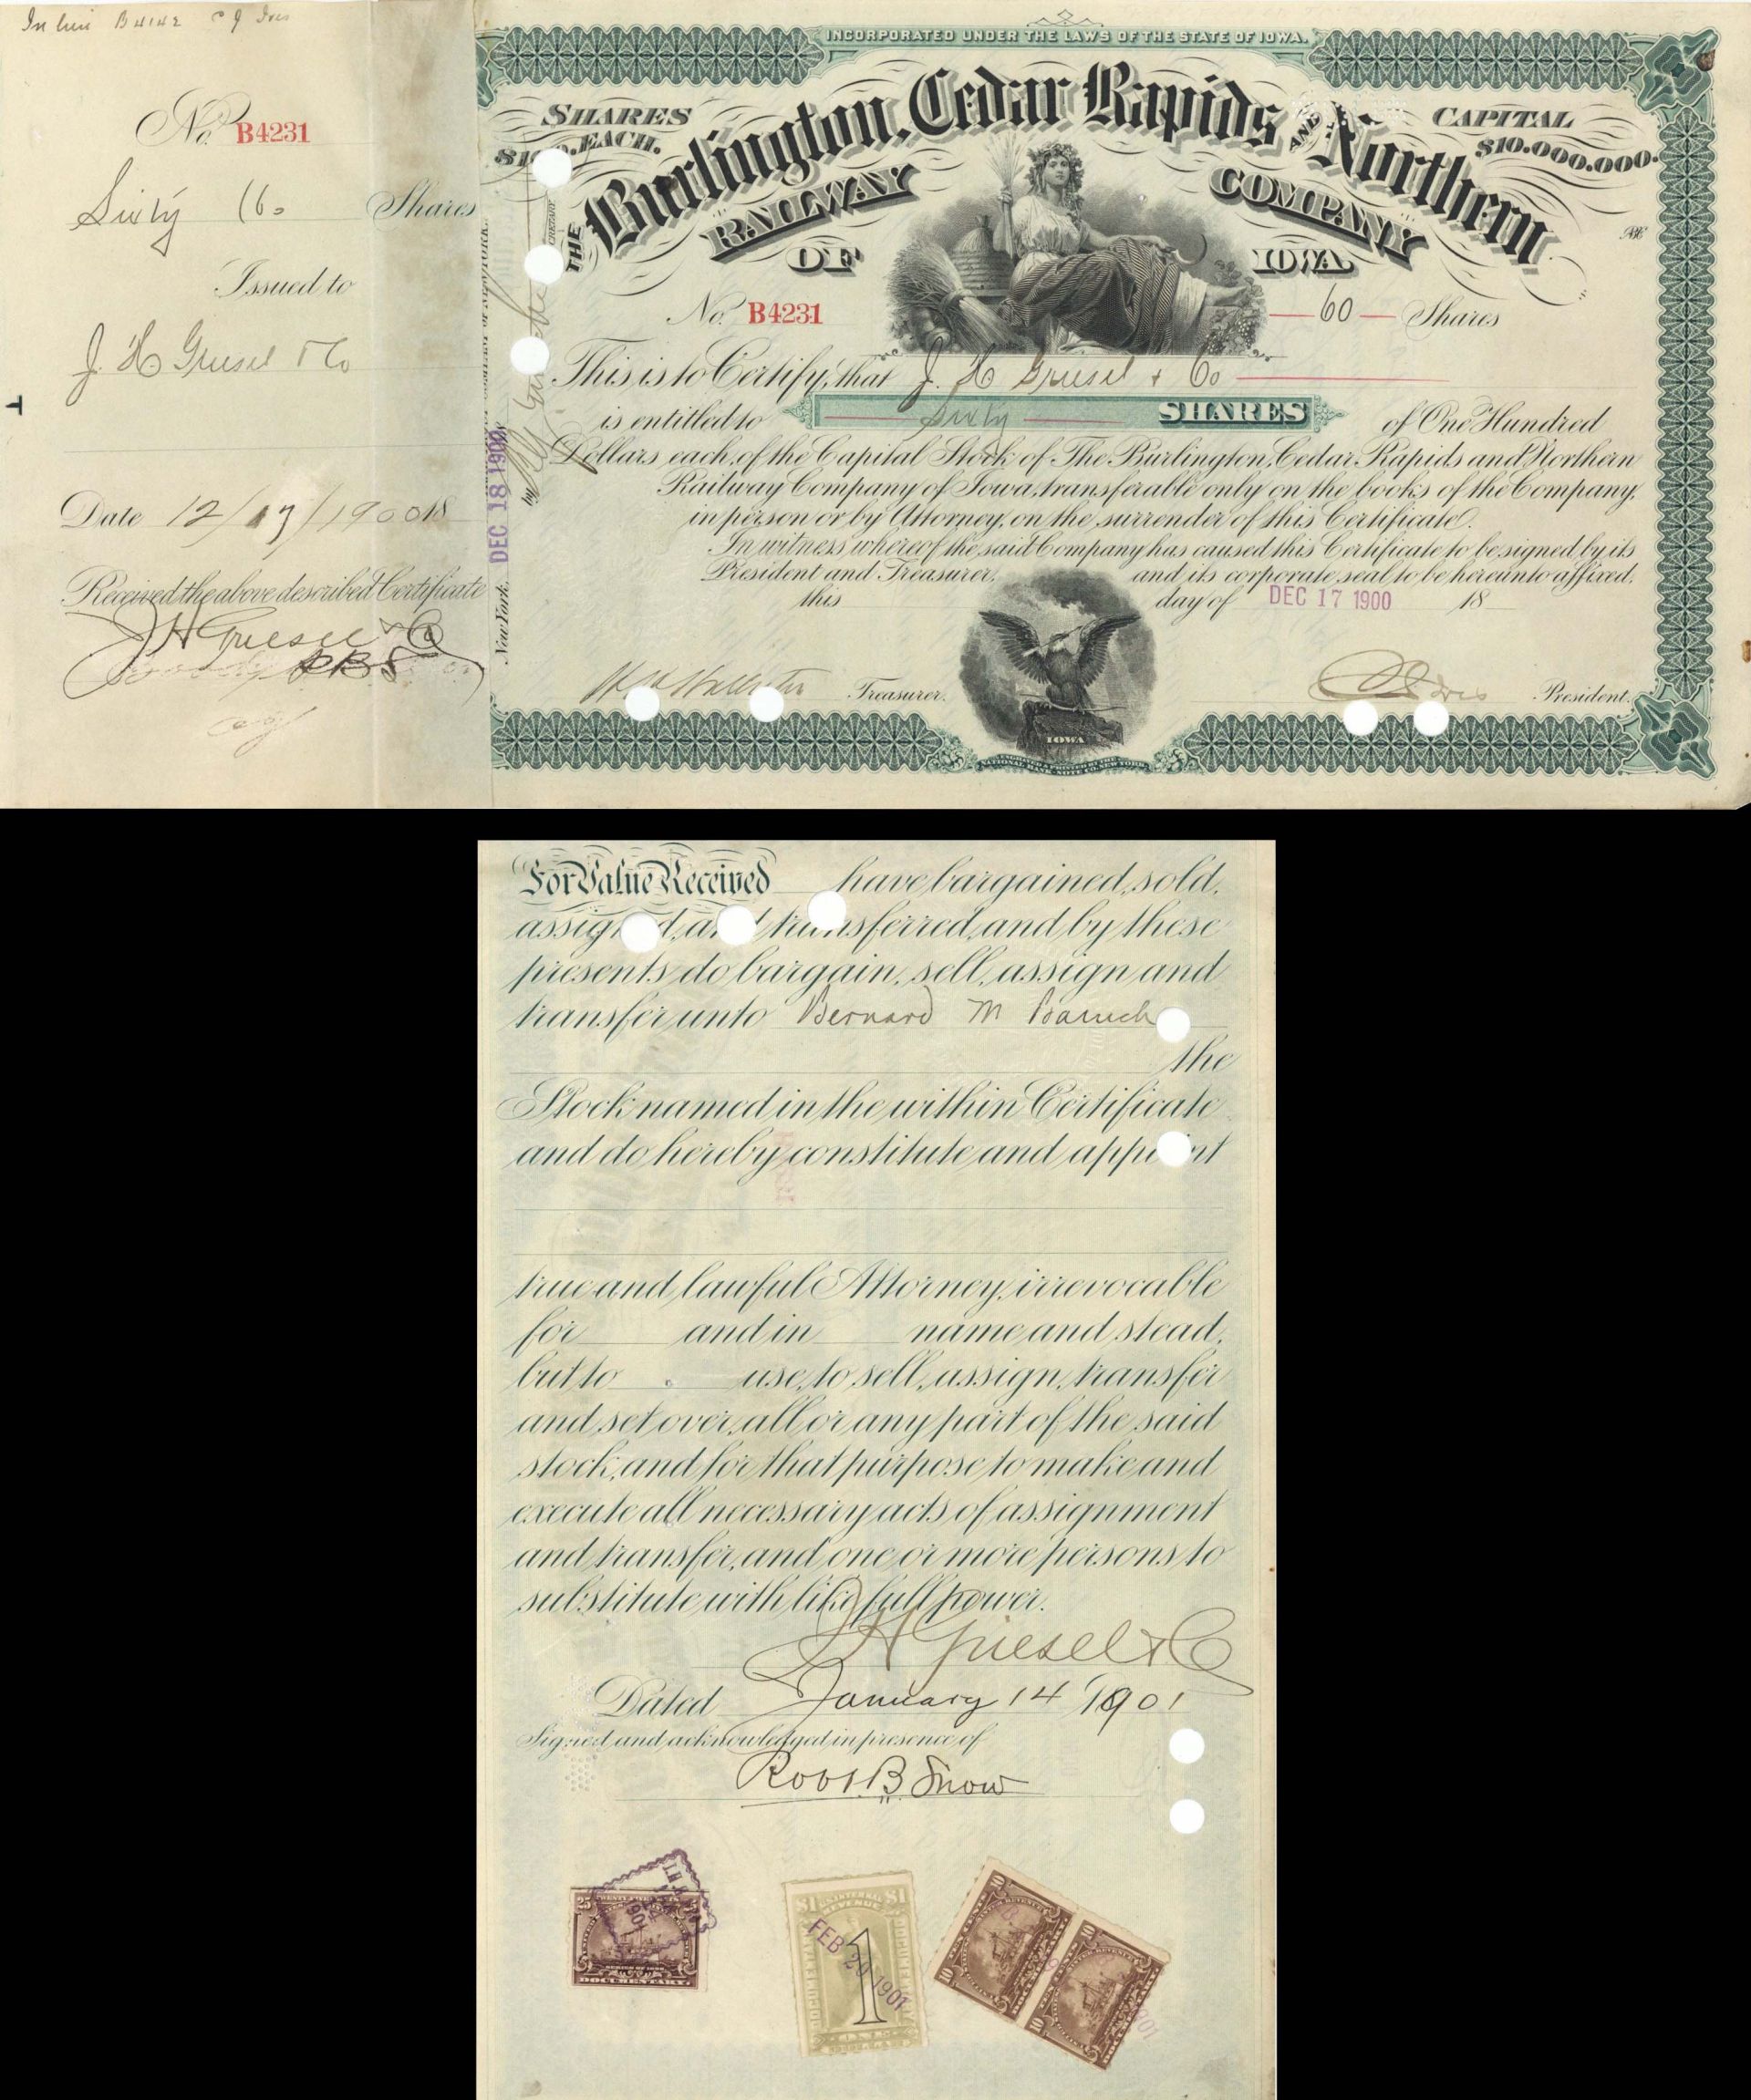 In lieu B4142 C J Ives
No. B4231
Sixty (60 Shares
Issued to
J. H Griesel & Co
Date 12/17/1900 18
Received the above described Certificate
J H Griesel & Co
INCORPORATED UNDER THE LAWS OF THE STATE OF IOWA.
SHARES
$100. EACH.
CAPITAL
$10.000.000.
THE Burlington, Cedar Rapids AND Northern
RAILWAY COMPANY
OF IOWA.
No. B4231
60 Shares
This is to Certify, that J. H Griesel & Co
is entitled to Sixty SHARES of One Hundred
Dollars each, of the Capital Stock of The Burlington, Cedar Rapids and Northern
Railway Company of Iowa, transferable only on the books of the Company,
in person or by Attorney, on the surrender of this Certificate.
In witness whereof the said Company has caused this Certificate to be signed by its
President and Treasurer, and its corporate seal to be hereunto affixed,
this day of DEC 17 1900 18
Treasurer.
C J Ives President.
IOWA
New York, DEC 18 1900
by
For Value Received have bargained, sold,
assigned, and transferred, and by these
presents do bargain, sell, assign and
transfer unto Bernard M Baruch
the
Stock named in the within Certificate
and do hereby constitute and appoint
true and lawful Attorney, irrevocable
for and in name and stead,
but to use, to sell, assign, transfer
and set over, all or any part of the said
stock, and for that purpose to make and
execute all necessary acts of assignment
and transfer, and one or more persons to
substitute with like full power.
J H Griesel & Co
Dated January 14 1901
Signed and acknowledged in presence of
Robt. B. Snow
25
DOCUMENTARY.
$1 INTERNAL $1
REVENUE
DOCUMENTARY
1
FEB 20 1901
ONE
DOLLAR
10
10
10
10